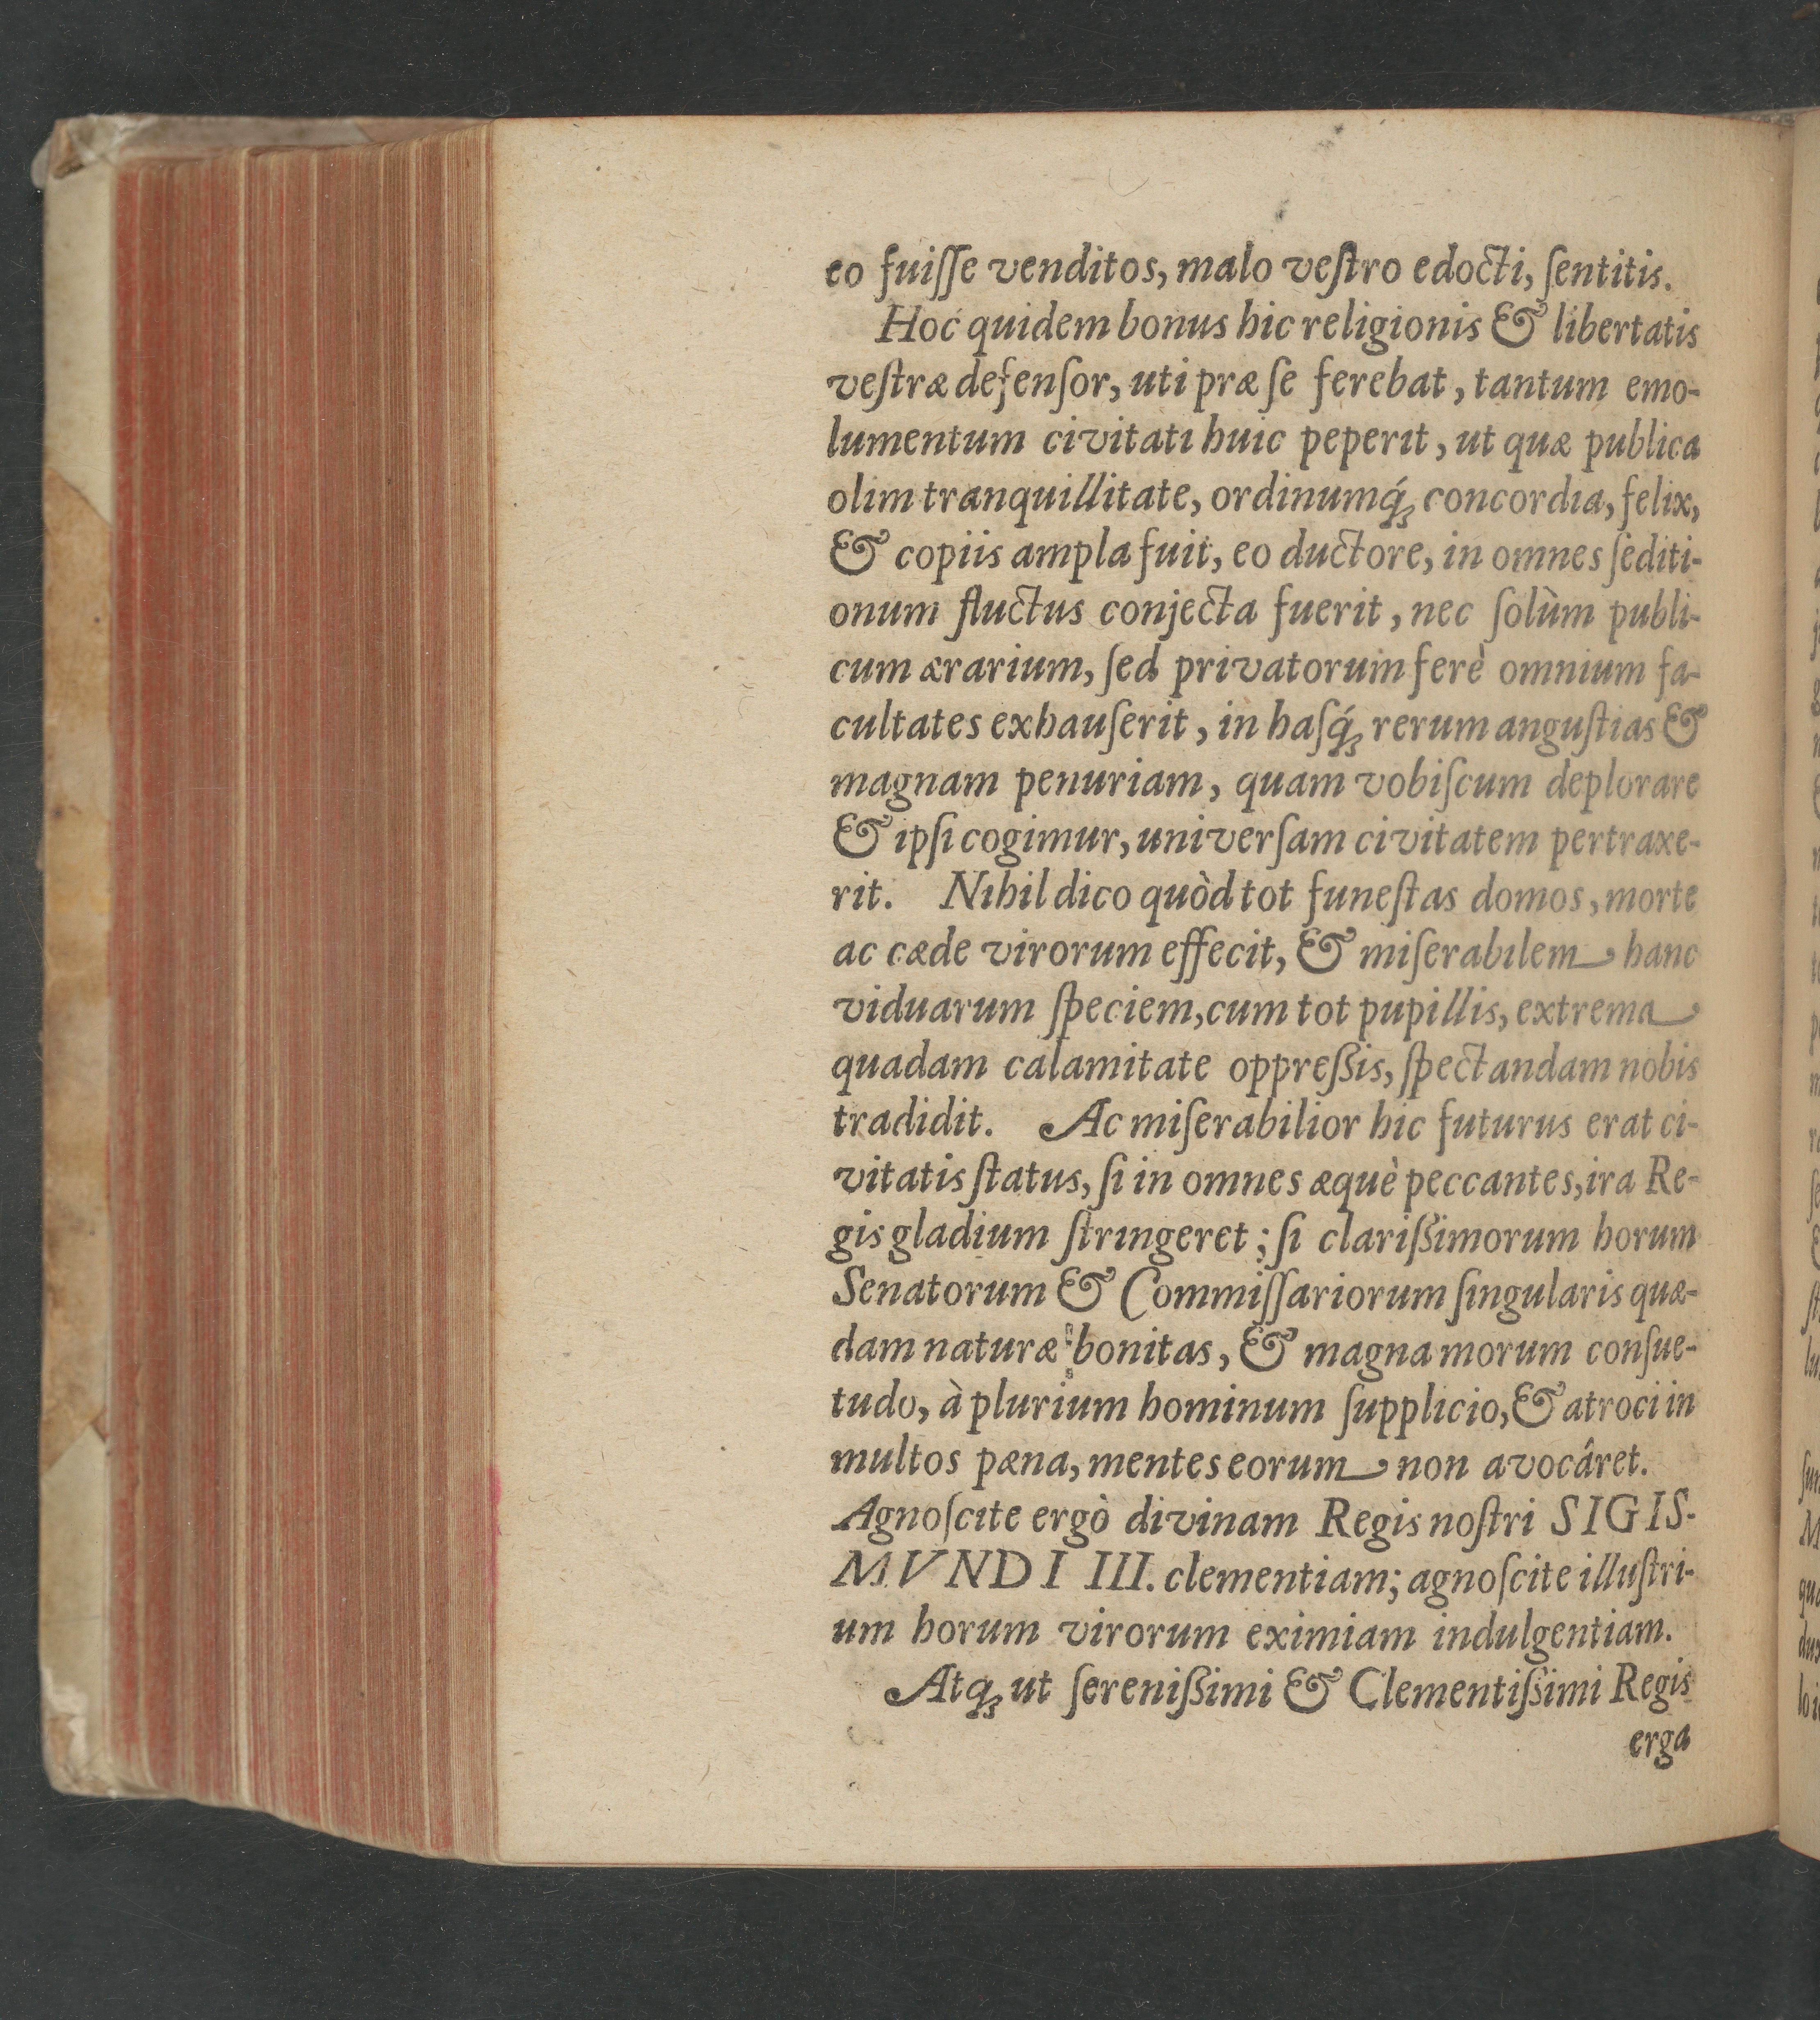 eo fuiſſe venditos, malo veſtro edocti, ſentitis.
Hoc quidem bonus hic religionis & libertatis
veſtræ defenſor, uti præ ſe ferebat, tantum emo-
lumentum civitati huic peperit, ut quæ publica
olim tranquillitate, ordinumq́ꝫ concordia, felix,
& copiis ampla fuit, eo ductore, in omnes ſediti-
onum fluctus conjecta fuerit, nec ſolùm publi-
cum ærarium, ſed privatorum ferè omnium fa-
cultates exhauſerit, in haſq́ꝫ rerum anguſtias &
magnam penuriam, quam vobiſcum deplorare
& ipſi cogimur, univerſam civitatem pertraxe-
rit. Nihil dico quòd tot funeſtas domos, morte
ac cæde virorum effecit, & miſerabilem hanc
viduarum ſpeciem, cum tot pupillis, extrema
quadam calamitate oppreßis, ſpectandam nobis
tradidit. Ac miſerabilior hic futurus erat ci-
vitatis ſtatus, ſi in omnes æquè peccantes, ira Re-
gis gladium ſtringeret; ſi clarißimorum horum
Senatorum & Commiſſariorum ſingularis quæ-
dam naturæ bonitas, & magna morum conſue-
tudo, à plurium hominum ſupplicio, & atroci in
multos pæna, mentes eorum non avocâret.
Agnoſcite ergò divinam Regis noſtri SIGIS-
MVNDI III. clementiam; agnoſcite illuſtri-
um horum virorum eximiam indulgentiam.
Atqꝫ ut ſerenißimi & Clementißimi Regis
erga